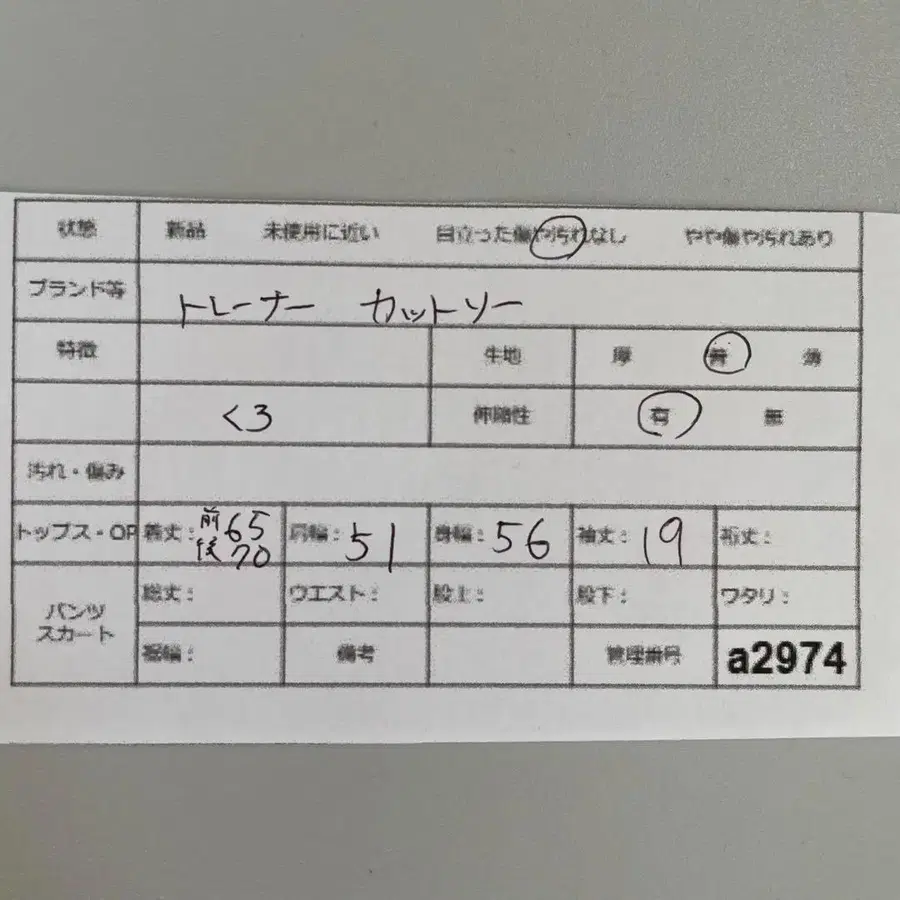 状態 新品 未使用に近い 目立った傷や汚れなし やや傷や汚れあり
ブランド等 トレーナー カットソー
特徴 生地 厚 普 薄
<3 伸縮性 有 無
汚れ・傷み
トップス・OP 着丈: 前65 後70 肩幅: 51 身幅: 56 袖丈: 19 裄丈:
パンツ スカート 総丈: ウエスト: 股上: 股下: ワタリ:
裾幅: 備考 管理番号 a2974